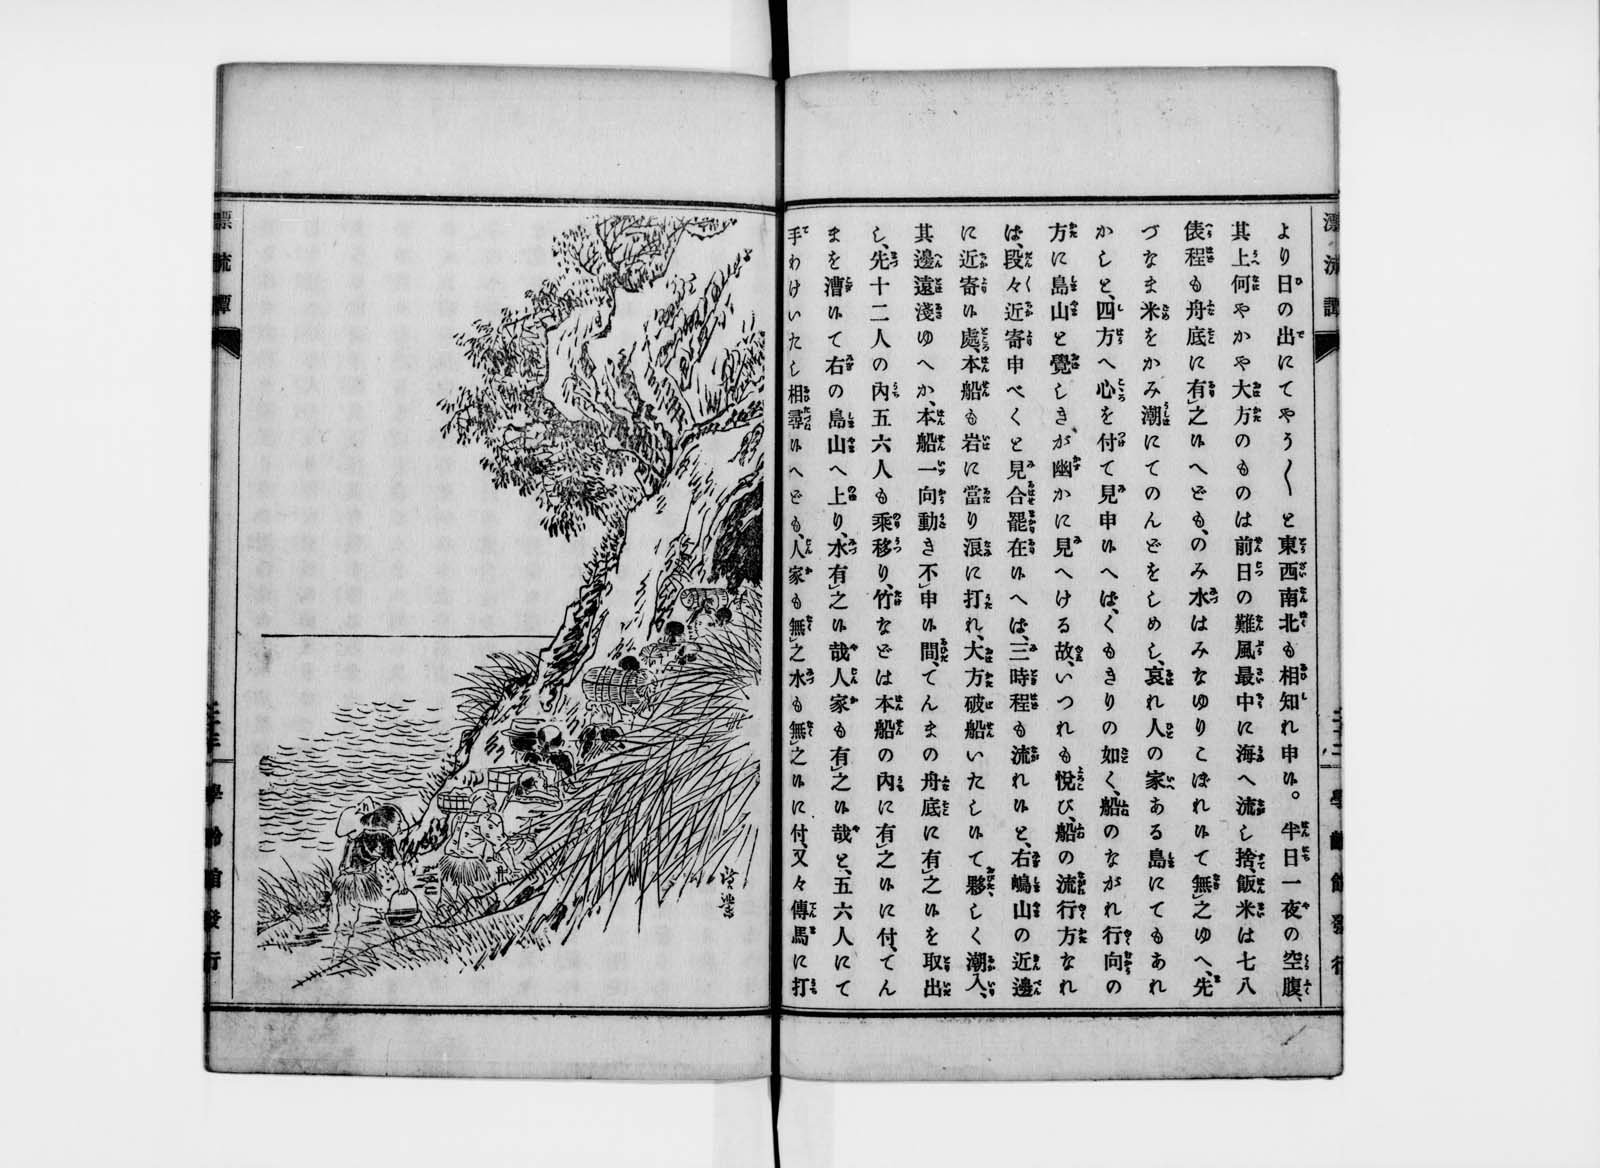 漂流譚
學齡館發行
より日の出にてやう〳〵と東西南北も相知れ申候。半日一夜の空腹、
其上何やかや大方のものは前日の難風最中に海へ流し捨、飯米は七八
俵程も舟底に有之候へども、のみ水はみなゆりこぼれ候て無之ゆへ、先
づなま米をかみ潮にてのんどをしめし、哀れ人の家ある島にてもあれ
かしと、四方へ心を付て見申候へば、くもきりの如く、船のながれ行向の
方に島山と覺しきが幽かに見へける故、いつれも悦び、船の流行方なれ
ば、段々近寄申べくと見合罷在候へば、三時程も流れ候と、右嶋山の近邊
に近寄候處、本船も岩に當り浪に打れ、大方破船いたし候て夥、しく潮入、
其邊遠淺ゆへか、本船一向動き不申候間、てんまの舟底に有之候を取出
し、先十二人の內五六人も乘移り、竹などは本船の內に有之候に付、てん
まを漕候て右の島山へ上り、水有之候哉人家も有之候哉と、五六人にて
手わけいたし相尋候へども、人家も無之水も無之候に付、又々傳馬に打
漂流譚
學齡館發行